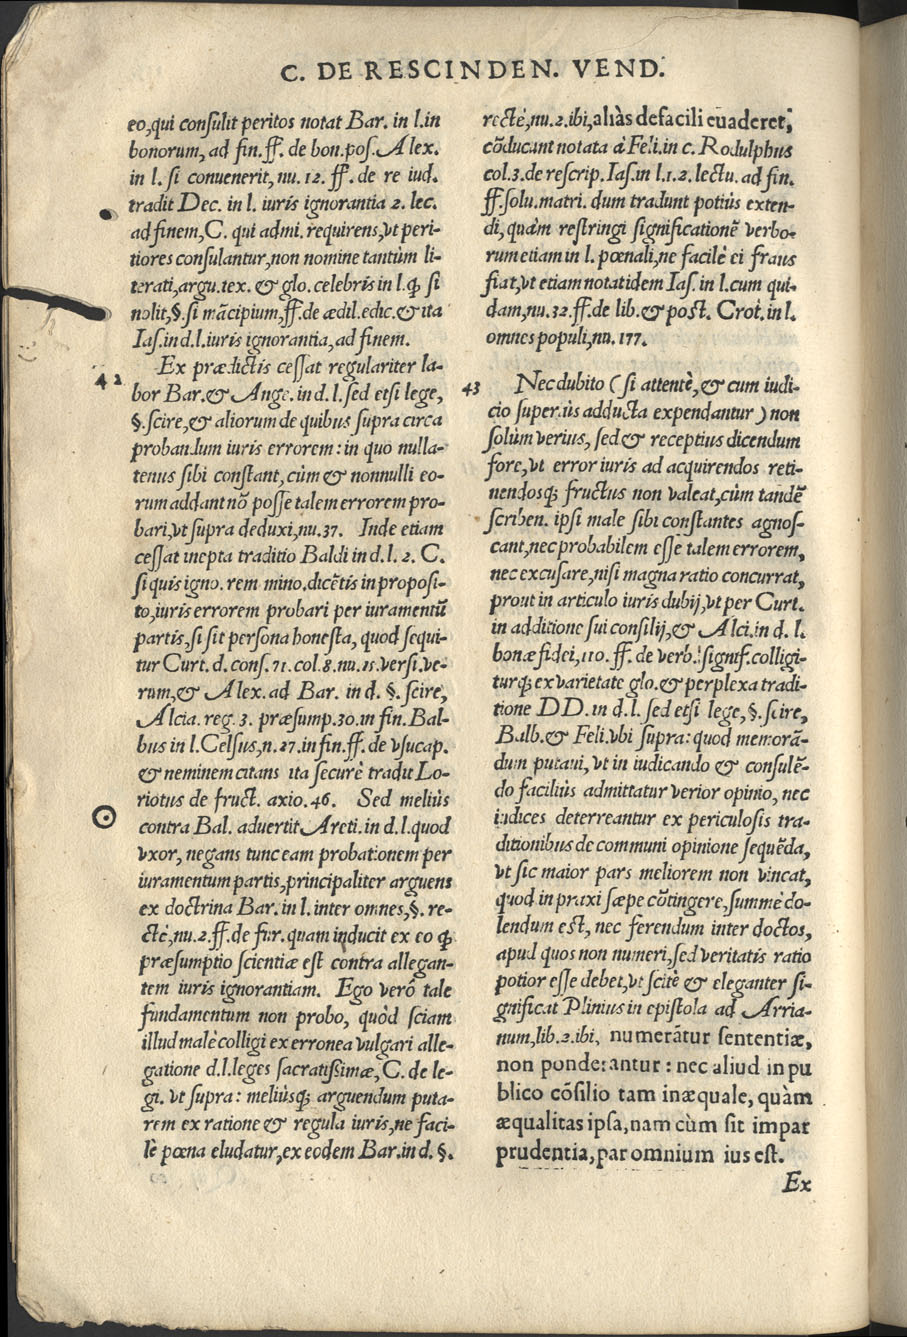 C. DE RESCINDEN. VEND.
eo, qui consulit peritos notat Bar. in l. in
bonorum, ad fin. ff. de bon. pos. Alex.
in l. si conuenerit, nu. 12. ff. de re iud.
tradit Dec. in l. iuris ignorantia 2. lec.
ad finem, C. qui admi. requirens, vt peri-
tiores consulantur, non nomine tantùm li-
terati, argu. tex. & glo. celebris in l. ꝙ si
nolit, §. si mãcipium, ff. de ædil. edic. & ita
Ias. in d. l. iuris ignorantia, ad finem.
42 Ex prædictis cessat regulariter la-
bor Bar. & Ange. in d. l. sed etsi lege,
§. scire, & aliorum de quibus supra circa
probandum iuris errorem: in quo nulla-
tenus sibi constant, cùm & nonnulli eo-
rum addant nõ posse talem errorem pro-
bari, vt supra deduxi, nu. 37. Inde etiam
cessat inepta traditio Baldi in d. l. 2. C.
si quis igno. rem mino. dicẽtis in proposi-
to, iuris errorem probari per iuramentũ
partis, si sit persona honesta, quod sequi-
tur Curt. d. cons. 71. col. 8. nu. 15. versi. ve-
rum, & Alex. ad Bar. in d. §. scire,
Alcia. reg. 3. præsump. 30. in fin. Bal-
bus in l. Celsus, n. 27. in fin. ff. de vsucap.
& neminem citans ita securè tradit Lo-
riotus de fruct. axio. 46. Sed meliùs
contra Bal. aduertit Areti. in d. l. quod
vxor, negans tunc eam probationem per
iuramentum partis, principaliter arguens
ex doctrina Bar. in l. inter omnes, §. re-
ctè, nu. 2. ff. de fur. quam inducit ex eo ꝙ
præsumptio scientiæ est contra allegan-
tem iuris ignorantiam. Ego verò tale
fundamentum non probo, quòd sciam
illud malè colligi ex erronea vulgari alle-
gatione d. l. leges sacratissimæ, C. de le-
gi. vt supra: meliùsq; arguendum puta-
rem ex ratione & regula iuris, ne faci-
lè pœna eludatur, ex eodem Bar. in d. §.
rectè, nu. 2. ibi, aliàs de facili euaderet;
cõducunt notata à Feli. in c. Rodulphus
col. 3. de rescrip. Ias. in l. 1. 2. lectu. ad fin.
ff. solu. matri. dum tradunt potiùs exten-
di, quàm restringi significationẽ verbo-
rum etiam in l. pœnali, ne facilè ei fraus
fiat, vt etiam notat idem Ias. in l. cum qui-
dam, nu. 32. ff. de lib. & post. Crot. in l.
omnes populi, nu. 177.
43 Nec dubito (si attentè, & cum iudi-
cio superiùs adducta expendantur) non
solùm verius, sed & receptius dicendum
fore, vt error iuris ad acquirendos reti-
nendosq; fructus non valeat, cùm tandẽ
scriben. ipsi male sibi constantes agnos-
cant, nec probabilem esse talem errorem,
nec excusare, nisi magna ratio concurrat,
prout in articulo iuris dubij, vt per Curt.
in additione sui consilij, & Alci. in d. l.
bonæ fidei, 110. ff. de verb. signif. colligi-
turq; ex varietate glo. & perplexa tradi-
tione DD. in d. l. sed etsi lege, §. scire,
Balb. & Feli. vbi supra: quod memorã-
dum putaui, vt in iudicando & consulẽ-
do faciliùs admittatur verior opinio, nec
iudices deterreantur ex periculosis tra-
ditionibus de communi opinione sequẽda,
vt sic maior pars meliorem non vincat,
quod in praxi sæpe cõtingere, summè do-
lendum est, nec ferendum inter doctos,
apud quos non numeri, sed veritatis ratio
potior esse debet, vt scitè & eleganter si-
gnificat Plinius in epistola ad Arria-
num, lib. 2. ibi, numerãtur sententiæ,
non ponderantur: nec aliud in pu
blico cõsilio tam inæquale, quàm
æqualitas ipsa, nam cùm sit impar
prudentia, par omnium ius est.
Ex